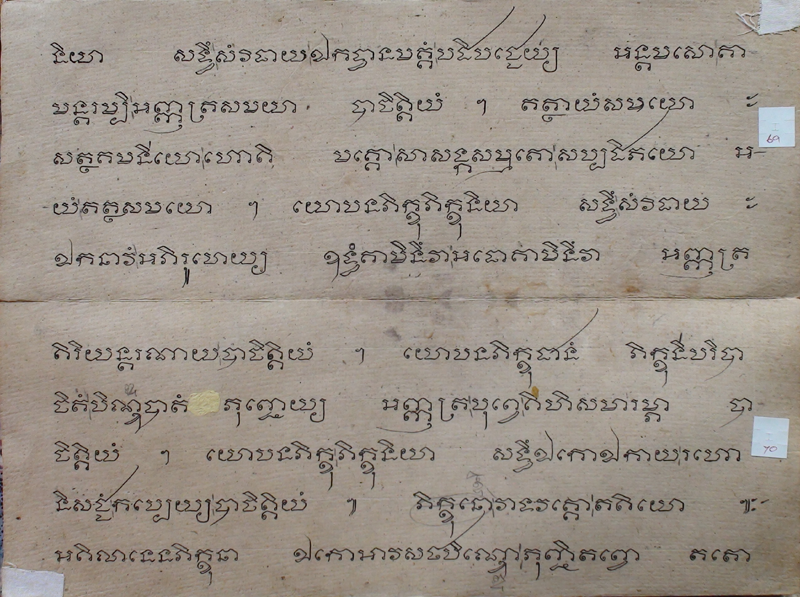 និយា សទ្ធឹសំវិធាយឯកទ្ធានមគ្គំបដិបជ្ជេយ្យ អន្តមសោគា
មន្តរម្បិអញ្ញត្រសមយា បាចិត្តិយំ ៗ តត្ថាយំសមយោ
សត្ថគមនីយោហោតិ មគ្គោសាសង្កសម្មតោសប្បដិភយោ អ-
យំតត្ថសមយោ ៗ យោបនភិក្ខុភិក្ខុនិយា សទ្ធឹសំវិធាយ
ឯកនាវំអភិរូហេយ្យ ឧទ្ធំគាមិនឹវាអធោគាមិនឹវា អញ្ញត្រ
69
តិរិយន្តរណាយបាចិត្តិយំ ៗ យោបនភិក្ខុជានំ ភិក្ខុនីបរិបា
ចិតំបិណ្ឌបាតំ ភុញ្ជេយ្យ អញ្ញត្របុព្វេគិហិសមារម្ភា បា
ចិត្តិយំ ៗ យោបនភិក្ខុភិក្ខុនិយា សទ្ធឹឯកោឯកាយរហោ
និសជ្ជំកប្បេយ្យបាចិត្តិយំ ៕ ភិក្ខុនោវាទវគ្គោតតិយោ ៕
អគិលានេនភិក្ខុនា ឯកោអាវសថបិណ្ឌោភុញ្ជិតព្វោ តតោ
70